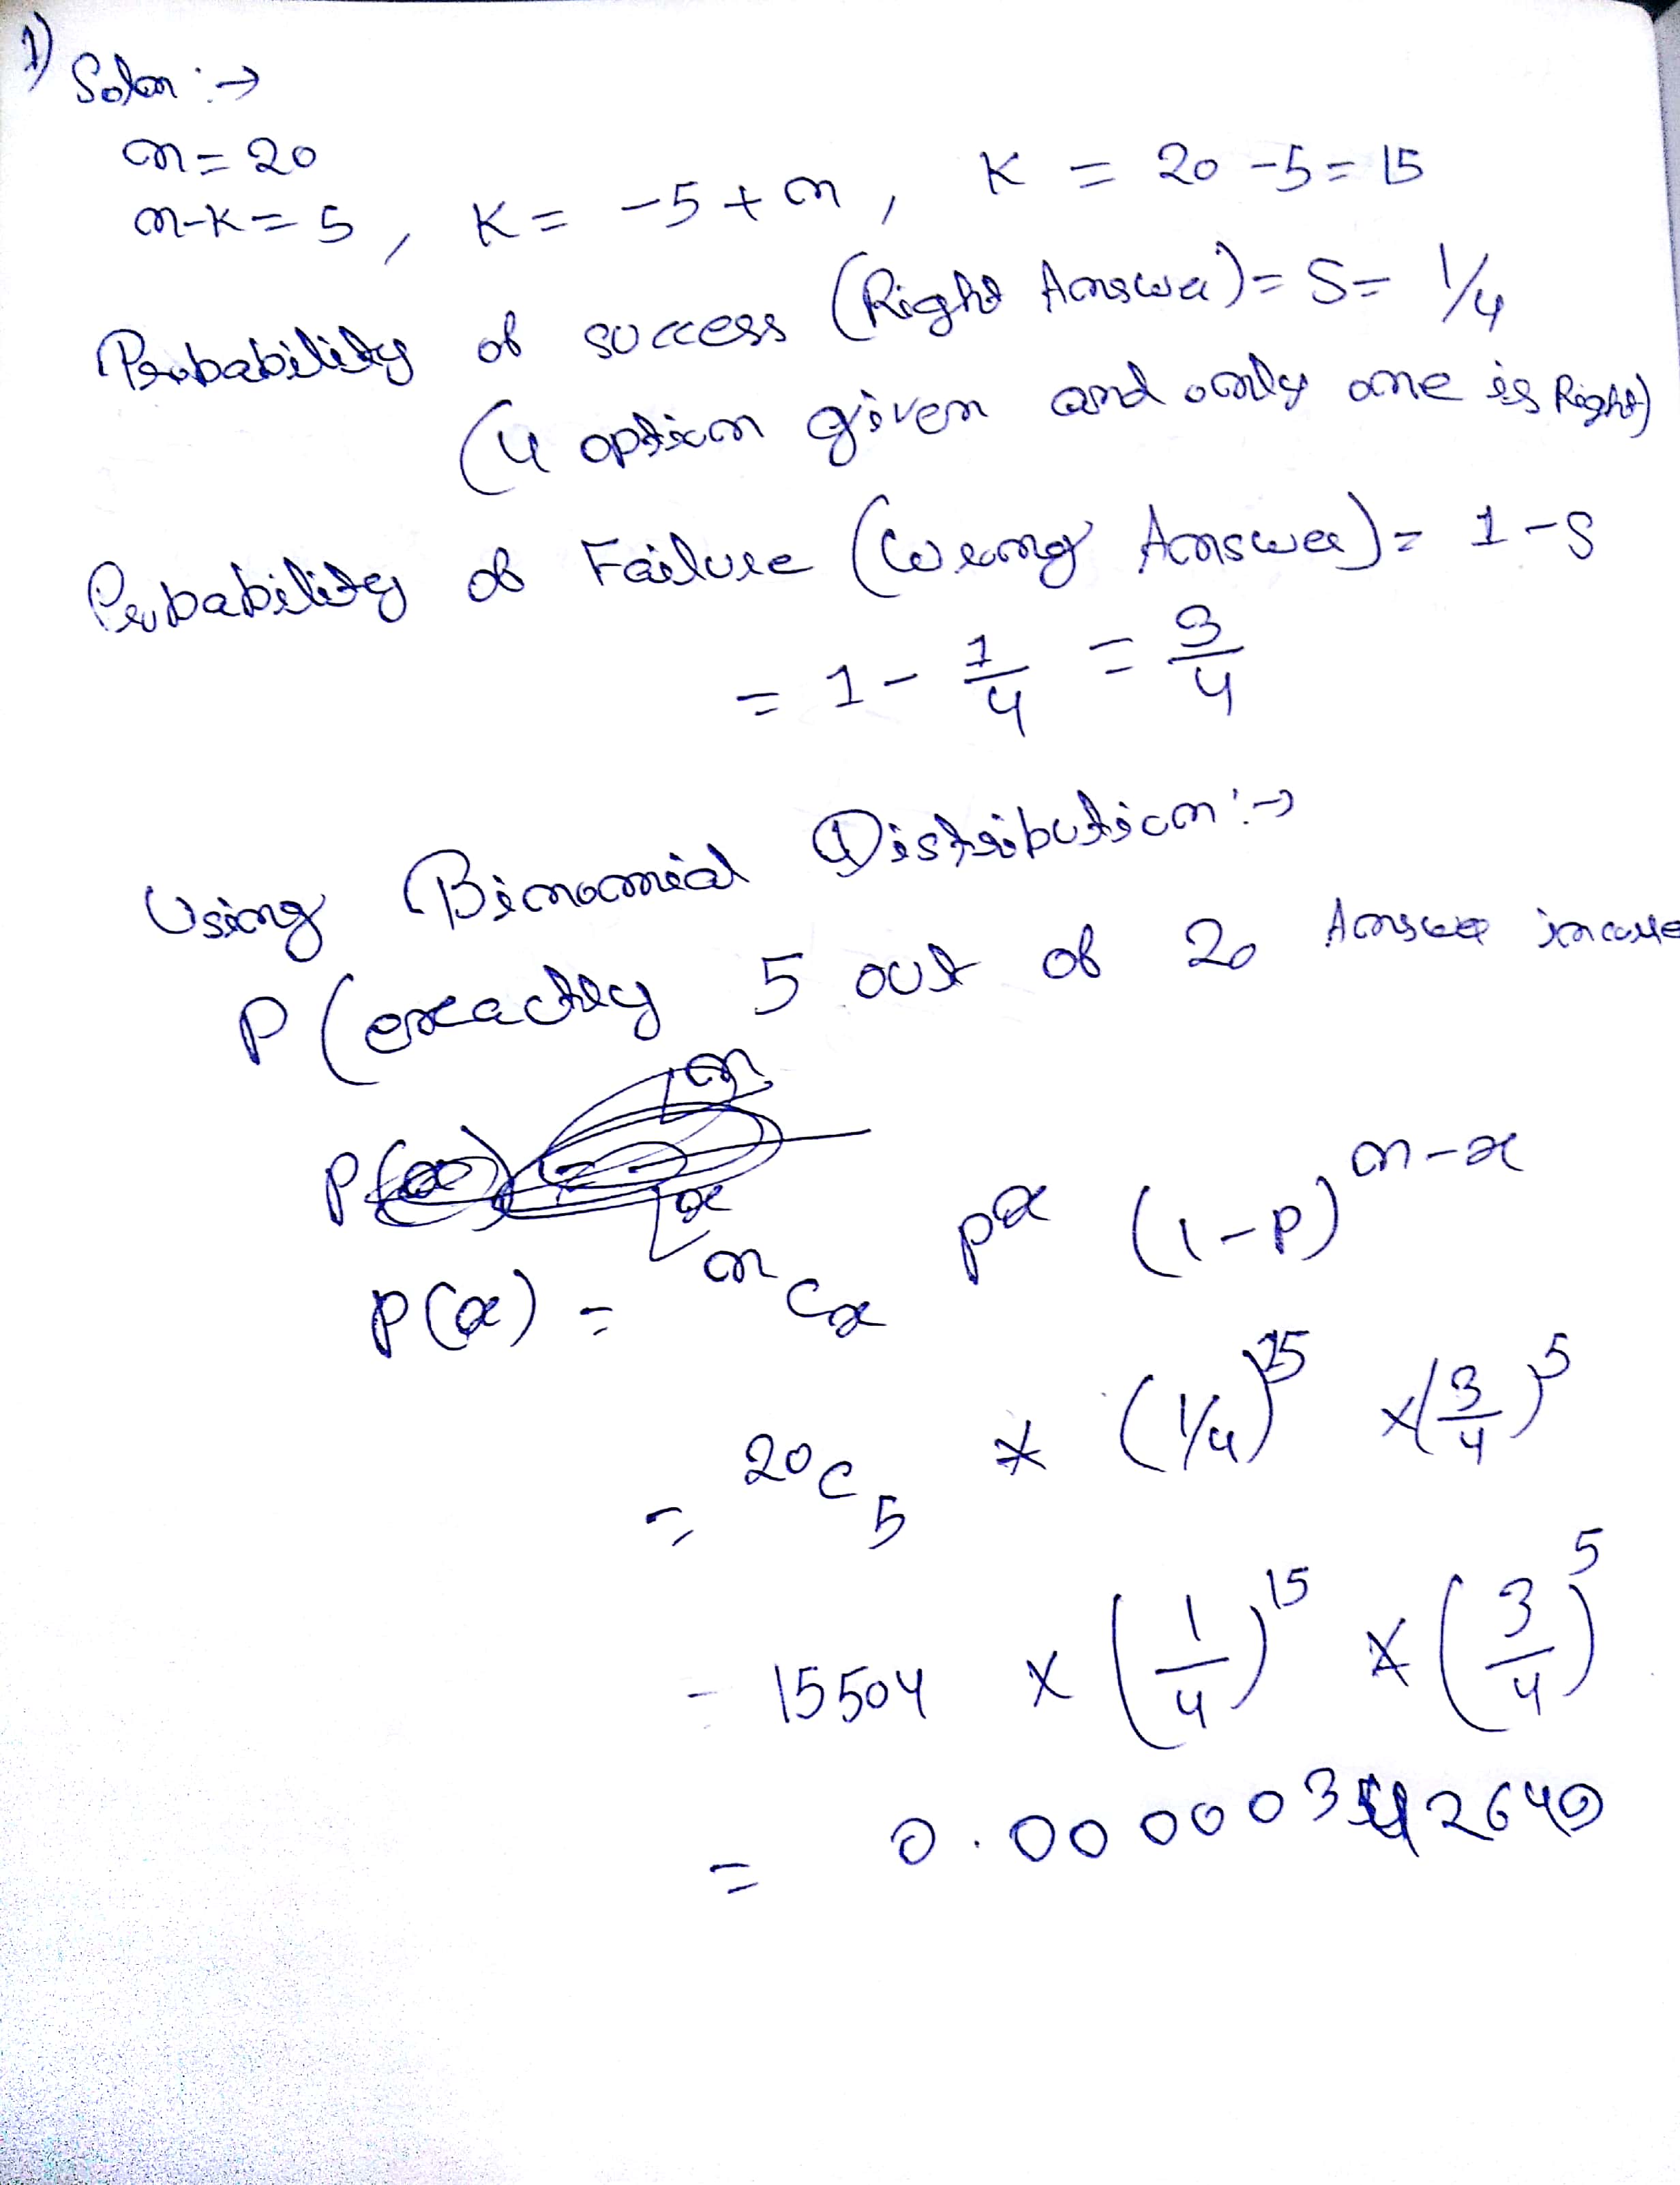 1) Soln :→
n = 20
n-K = 5 , K = -5 + n , K = 20 - 5 = 15
Probability of success (Right Answer) = S = 1/4
(4 option given and only one is Right)
Probability of Failure (Wrong Answer) = 1 - S
= 1 - 1/4 = 3/4
Using Binomial Distribution :→
P (exactly 5 out of 20 Answer
P(x) = nCx p^x (1-P)^n-x
= 20C5 * (1/4)^15 × (3/4)^5
= 15504 × (1/4)^15 × (3/4)^5
= 0.00000342640